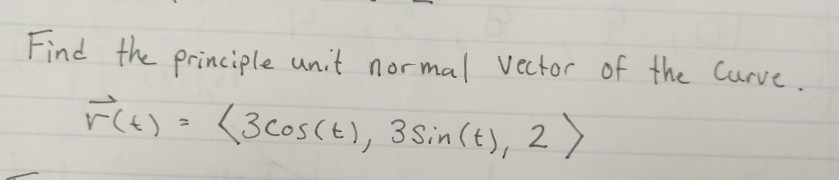 Find the principle unit normal vector of the curve.
r⃗(t) = ⟨3cos(t), 3sin(t), 2⟩